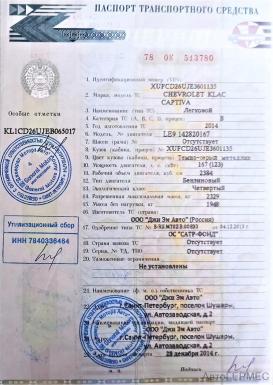 ПАСПОРТ ТРАНСПОРТНОГО СРЕДСТВА
78 ОК 513780
Особые отметки
KL1CD26UJEB065017
Утилизационный сбор
ИНН 7840336464
1. Идентификационный номер (VIN) XUFCD26UJE3601135
2. Марка, модель ТС CHEVROLET KLAC CAPTIVA
3. Наименование (тип ТС) Легковой
4. Категория ТС (A, B, C, D, прицеп) B
5. Год изготовления ТС 2014
6. Модель, № двигателя LE9 142820167
7. Шасси (рама) № Отсутствует
8. Кузов (кабина, прицеп) № XUFCD26UJE3601135
9. Цвет кузова (кабины, прицепа) Темно-серый металлик
10. Мощность двигателя, л.с. (кВт) 167 (123)
11. Рабочий объем двигателя 2384
12. Тип двигателя Бензиновый
13. Экологический класс Четвертый
14. Разрешенная максимальная масса 2329
15. Масса без нагрузки 1948
16. Изготовитель ТС ООО "Джи Эм Авто" (Россия)
17. Одобрение типа ТС №
ОС "САТР-ФОНД"
18. Страна вывоза ТС Отсутствует
19. Серия, № ТД, ТПО Отсутствует
20. Таможенные ограничения
Не установлены
21. ООО "Джи Эм Авто"
22. Санкт-Петербург, поселок Шушары,
ул. Автозаводская, д.2
23. ООО "Джи Эм Авто"
24. Санкт-Петербург, поселок Шушары,
ул. Автозаводская, д.2
25. 28 декабря 2014 г.
Подпись